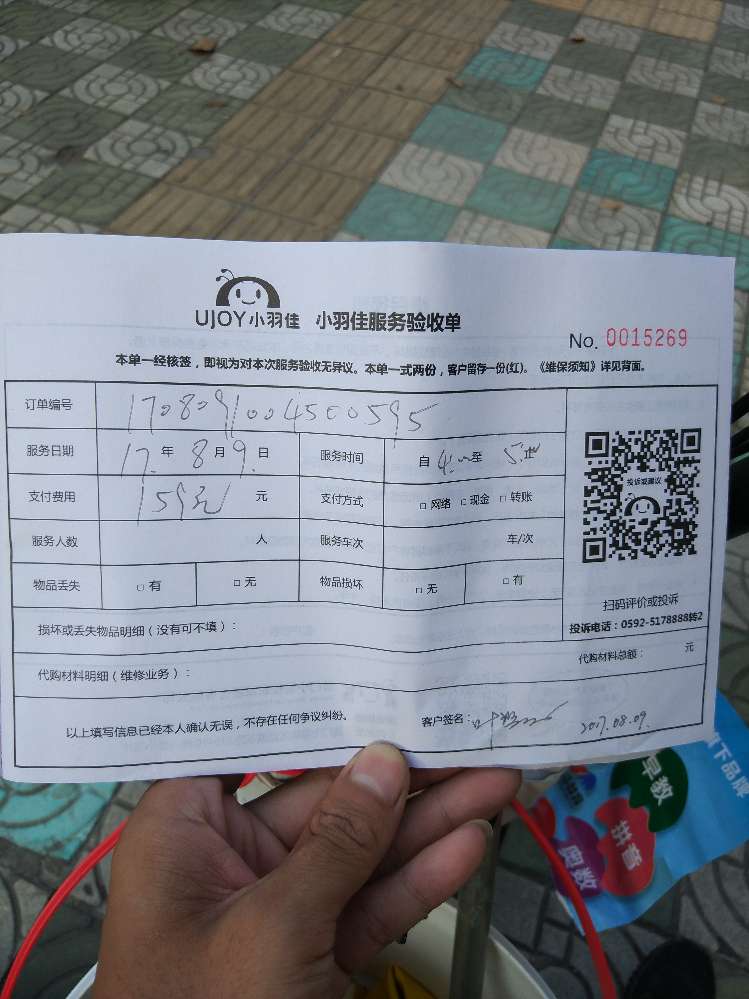 UJOY小羽佳 小羽佳服务验收单
No. 0015269
本单一经核签，即视为对本次服务验收无异议。本单一式两份，客户留存一份(红)。《维保须知》详见背面。
订单编号 1708091004500595
服务日期 17.年 8月9.日 服务时间 自 4:00至
支付费用 159元 元 支付方式 □网络 □现金 □转账
投诉或建议
服务人数 人 服务车次 车/次
物品丢失 □有 □无 物品损坏 □无 □有
扫码评价或投诉
投诉电话：0592-5178888转2
损坏或丢失物品明细（没有可不填）：
代购材料明细（维修业务）： 代购材料总额： 元
以上填写信息已经本人确认无误，不存在任何争议纠纷。 客户签名： 2017.08.09.
旗下品牌
早教
拼音
奥数